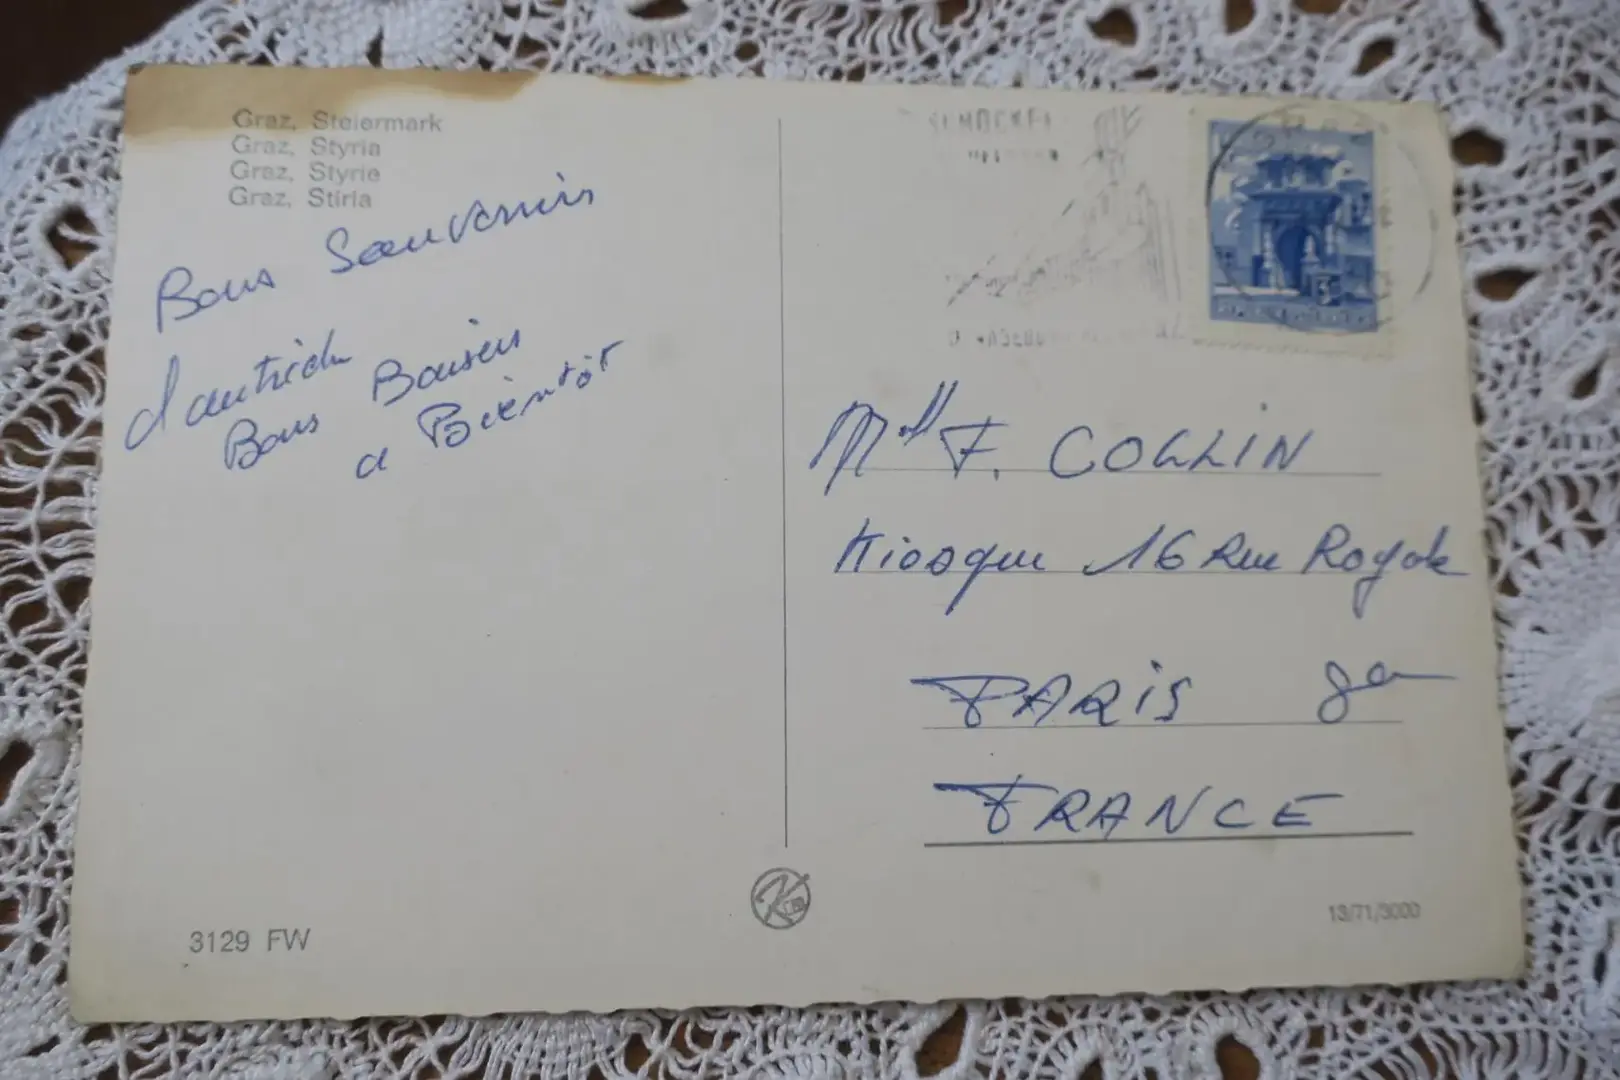 Graz, Steiermark
Graz, Styria
Graz, Styrie
Graz, Stiria
Bons Souvenirs
d'autrich
Bons Baisers
a Bientôt
Mell F. COLLIN
Kiosque 16 Rue Royale
PARIS 8em
FRANCE
3129 FW
13/71/3000